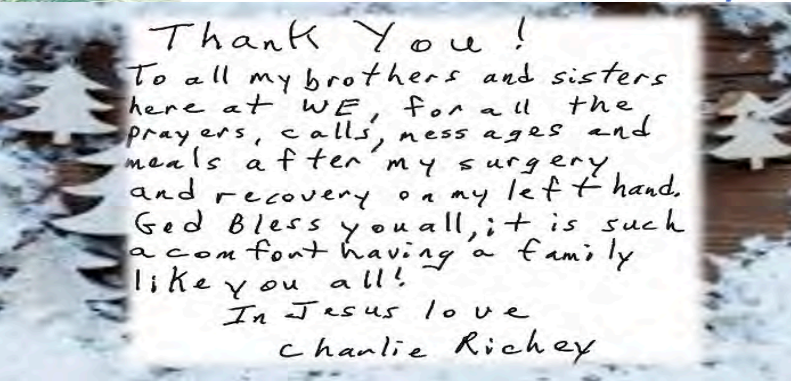 Thank You!
To all my brothers and sisters
here at WE, for all the
prayers, calls, messages and
meals after my surgery
and recovery on my left hand.
God Bless you all, it is such
a comfort having a family
like you all!
In Jesus love
Charlie Richey